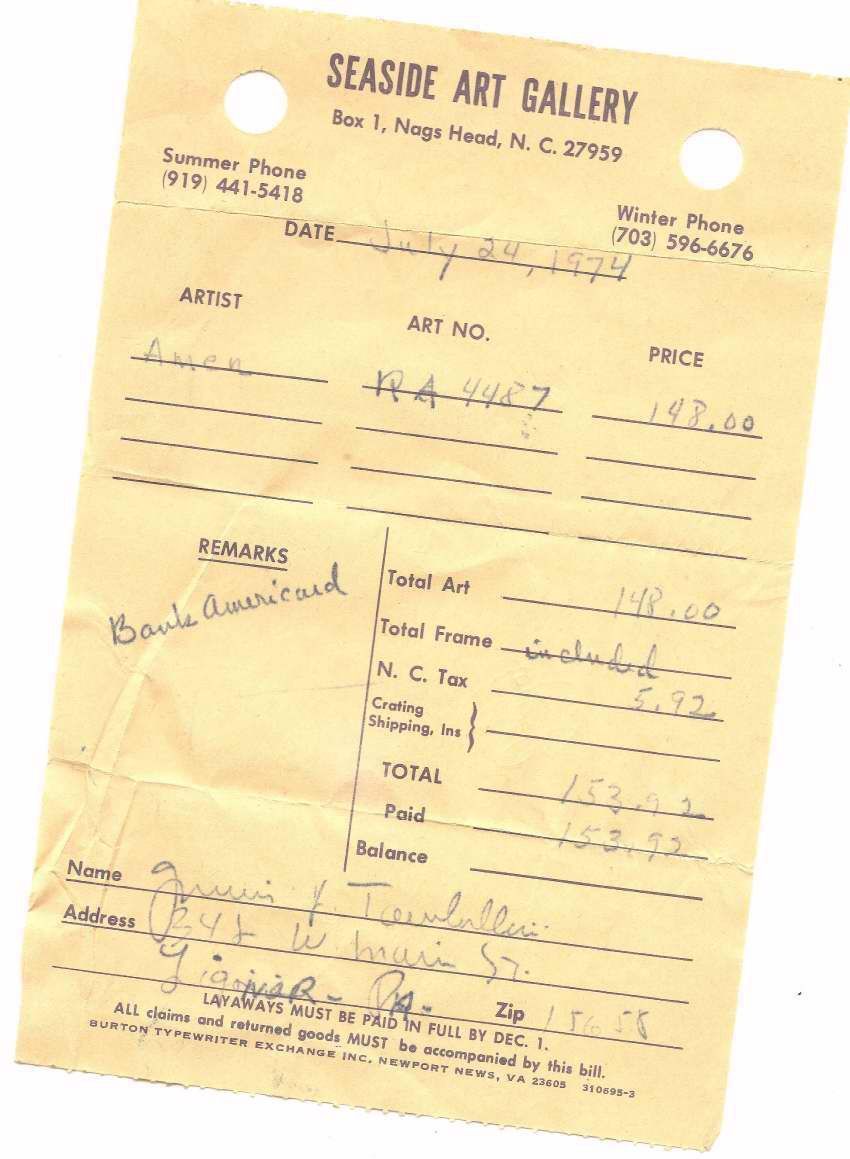 SEASIDE ART GALLERY
Box 1, Nags Head, N. C. 27959
Summer Phone
(919) 441-5418
Winter Phone
(703) 596-6676
DATE July 24, 1974
ARTIST ART NO. PRICE
Amen RA 4487 148.00
REMARKS
BankAmericard
Total Art 148.00
Total Frame included
N. C. Tax 5.92
Crating
Shipping, Ins }
TOTAL 153.92
Paid 153.92
Balance
Name
Address W. Main St.
Ligonier - PA. Zip 15658
LAYAWAYS MUST BE PAID IN FULL BY DEC. 1.
ALL claims and returned goods MUST be accompanied by this bill.
BURTON TYPEWRITER EXCHANGE INC. NEWPORT NEWS, VA 23605 310695-3